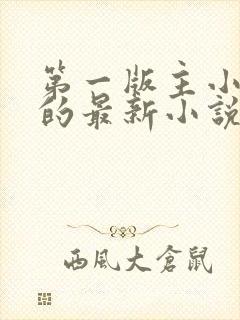 第一版主小
的最新小説
西風大倉鼠